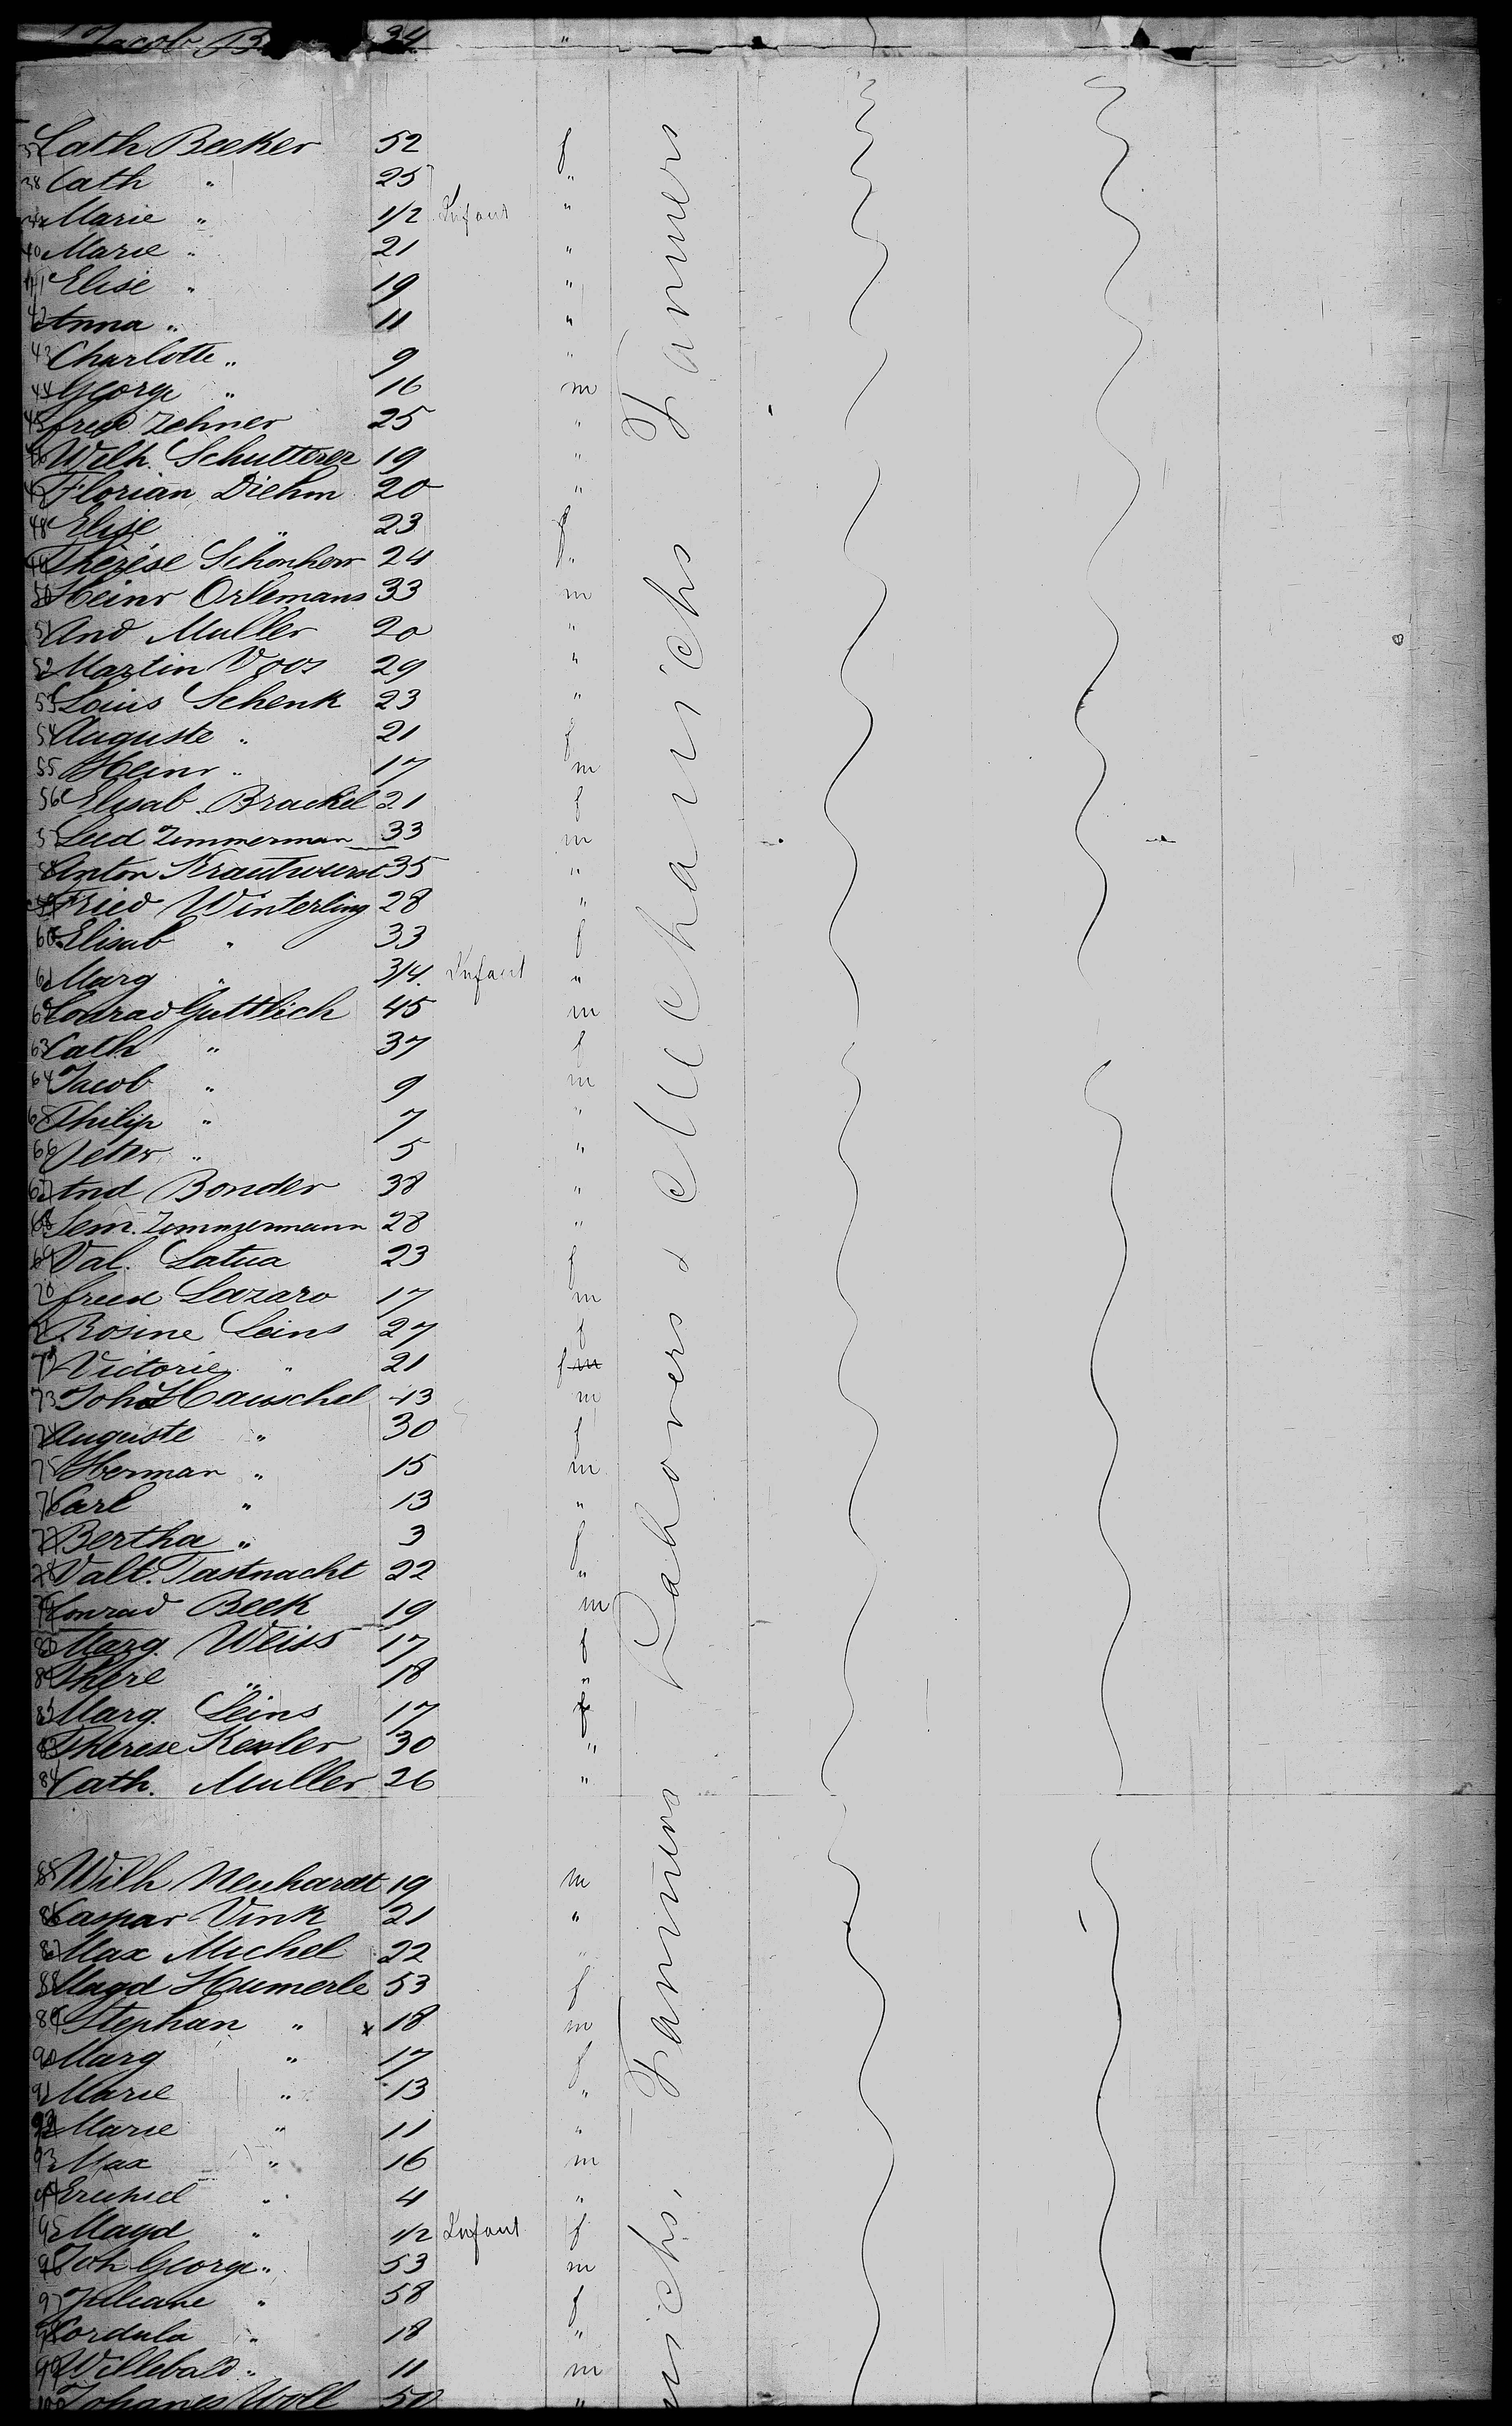 Jacob B 34 "
Cath Becker 52 f
38 Cath " 25 "
Marie " 1/2 Infant "
40 Marie " 21 "
41 Elise " 19 "
42 Anna " 11 "
43 Charlotte " 9 "
44 George " 16 m
45 Fred Zehner 25 "
46 Wilh. Schutterer 19 "
47 Florian Diehm 20 "
48 Elise " 23 f
49 Therése Schonherr 24 "
50 Heinr Orlemans 33 m
51 And Muller 20 "
52 Martin Voos 29 "
53 Louis Schenk 23 "
54 Auguste " 21 f
55 Heinr " 17 m
56 Elisab. Brackel 21 f
57 Zimmerman 33 m
58 Anton Krautwurst 35 "
59 Fried Winterling 28 "
60 Elisab " 33 f
61 Marg " 3/4 Infant "
62 Conrad Guttlich 45 m
63 Cath " 37 f
64 Jacob " 9 m
65 Philip " 7 "
66 Peter " 5 "
67 And Bonder 38 "
68 Sem. Zimmermann 28 "
69 Val. Latua 23 f
70 Fred Lazaro 17 m
71 Rosine Leins 27 f
72 Victorie " 21 f m
73 Joh Hauschel 43 m
74 Auguste " 30 f
75 Herman " 15 m
76 Carl " 13 "
77 Bertha " 3 f
78 Valt. Fastnacht 22 "
79 Conrad Beek 19 m
80 Marg. Weiss 17 f
81 There " 18 "
82 Marg. Leins 17 f
83 Therese Kesler 30 "
84 Cath. Muller 26 "
85 Wilh Neuhardt 19 m
86 Caspar Vink 21 "
87 Max Michel 22 "
88 Magd Humerle 53 f
89 Stephan " x 18 m
90 Marg " 17 f
91 Marie " 13 "
92 Marie " 11 "
93 Max " 16 m
94 " 4 "
95 Magd " 1/2 Infant f
96 Joh George " 53 m
97 Juliane " 58 f
98 Cordula " 18 "
99 Willebald " 11 m
100 Johanes Woll 50 "
Farmers
Labovers & Mechanichs
Farmers
nichs,